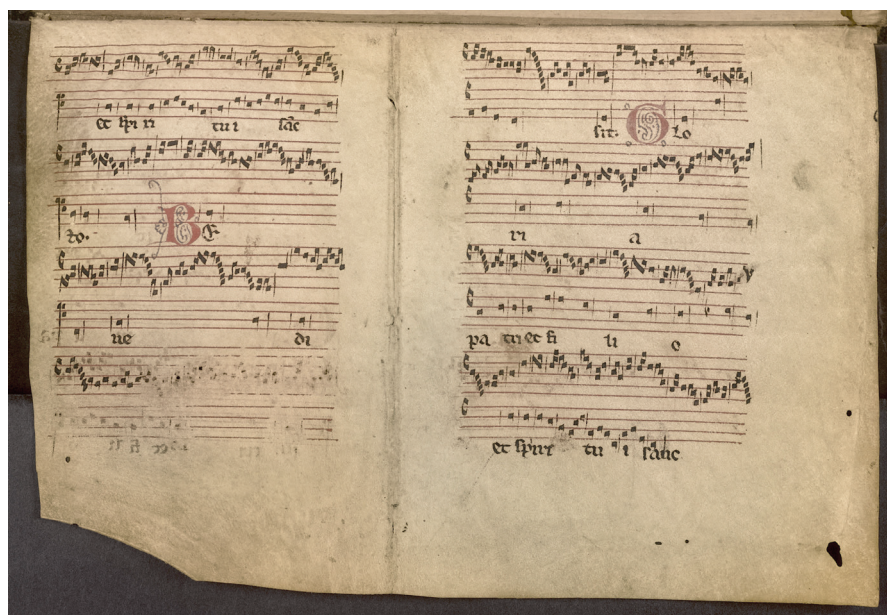 et spi ri tu i sāc
to. BE
ne di
sit. Glo
ri a
pa tri et fi li o
et spiri tu i sāuc